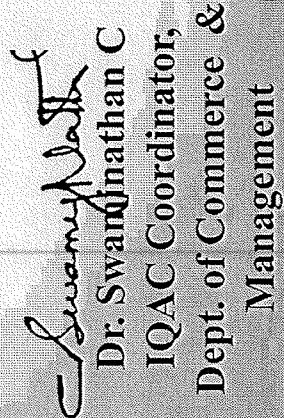 Swamynathan
Dr. Swaminathan C
IQAC Coordinator,
Dept. of Commerce &
Management